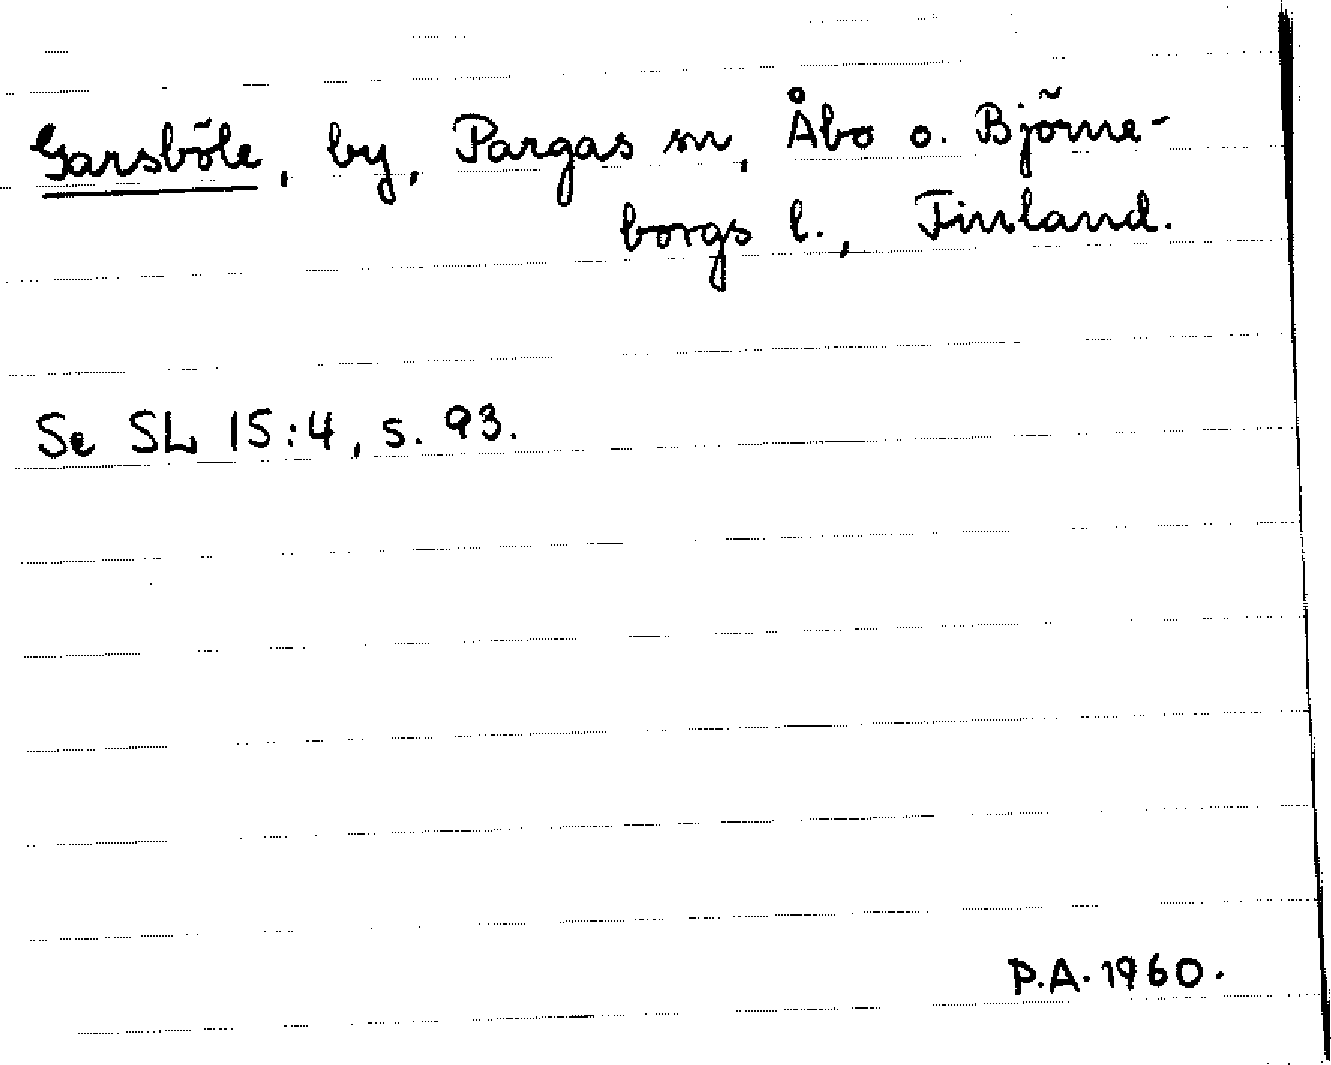 Garsböle, by, Pargas sn, Åbo o. Björne-
borgs l., Finland.
Se SL 15:4, s. 93.
P.A. 1960.